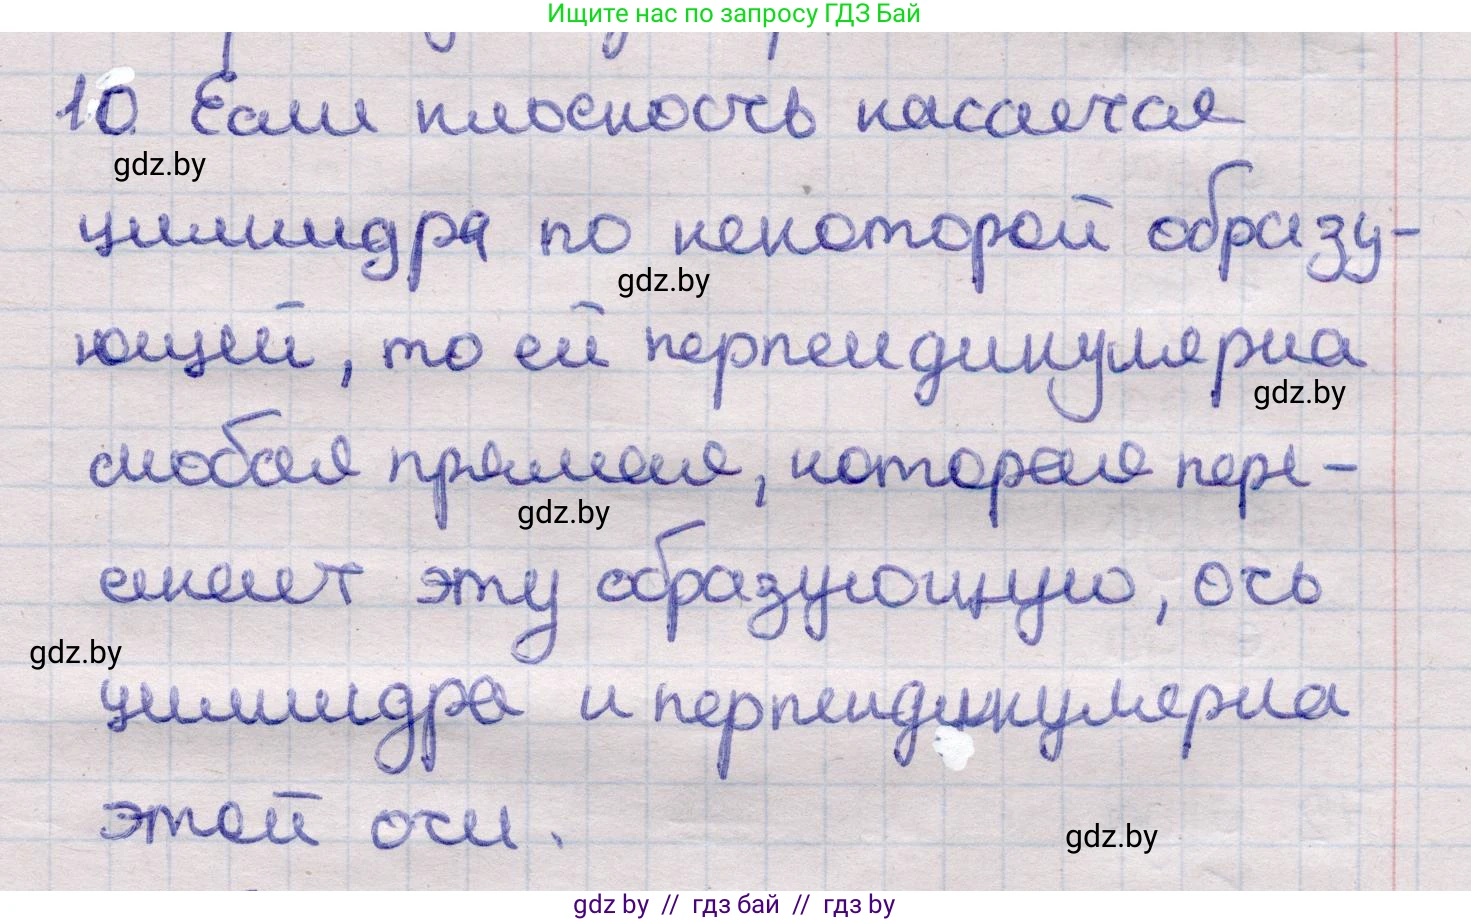 Ищите нас по запросу ГДЗ Бай
10. Если плоскость касается
gdz.by
цилиндра по некоторой образу-
gdz.by
ющей, то ей перпендикулярна
gdz.by
любая прямая, которая пере-
gdz.by
секает эту образующую, ось
gdz.by
цилиндра и перпендикулярна
этой оси.
gdz.by
gdz by // гдз бай // гдз by